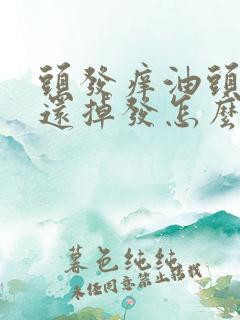 頭發痒油頭
還掉發怎麼
暮色纯纯
未经同意禁止转载